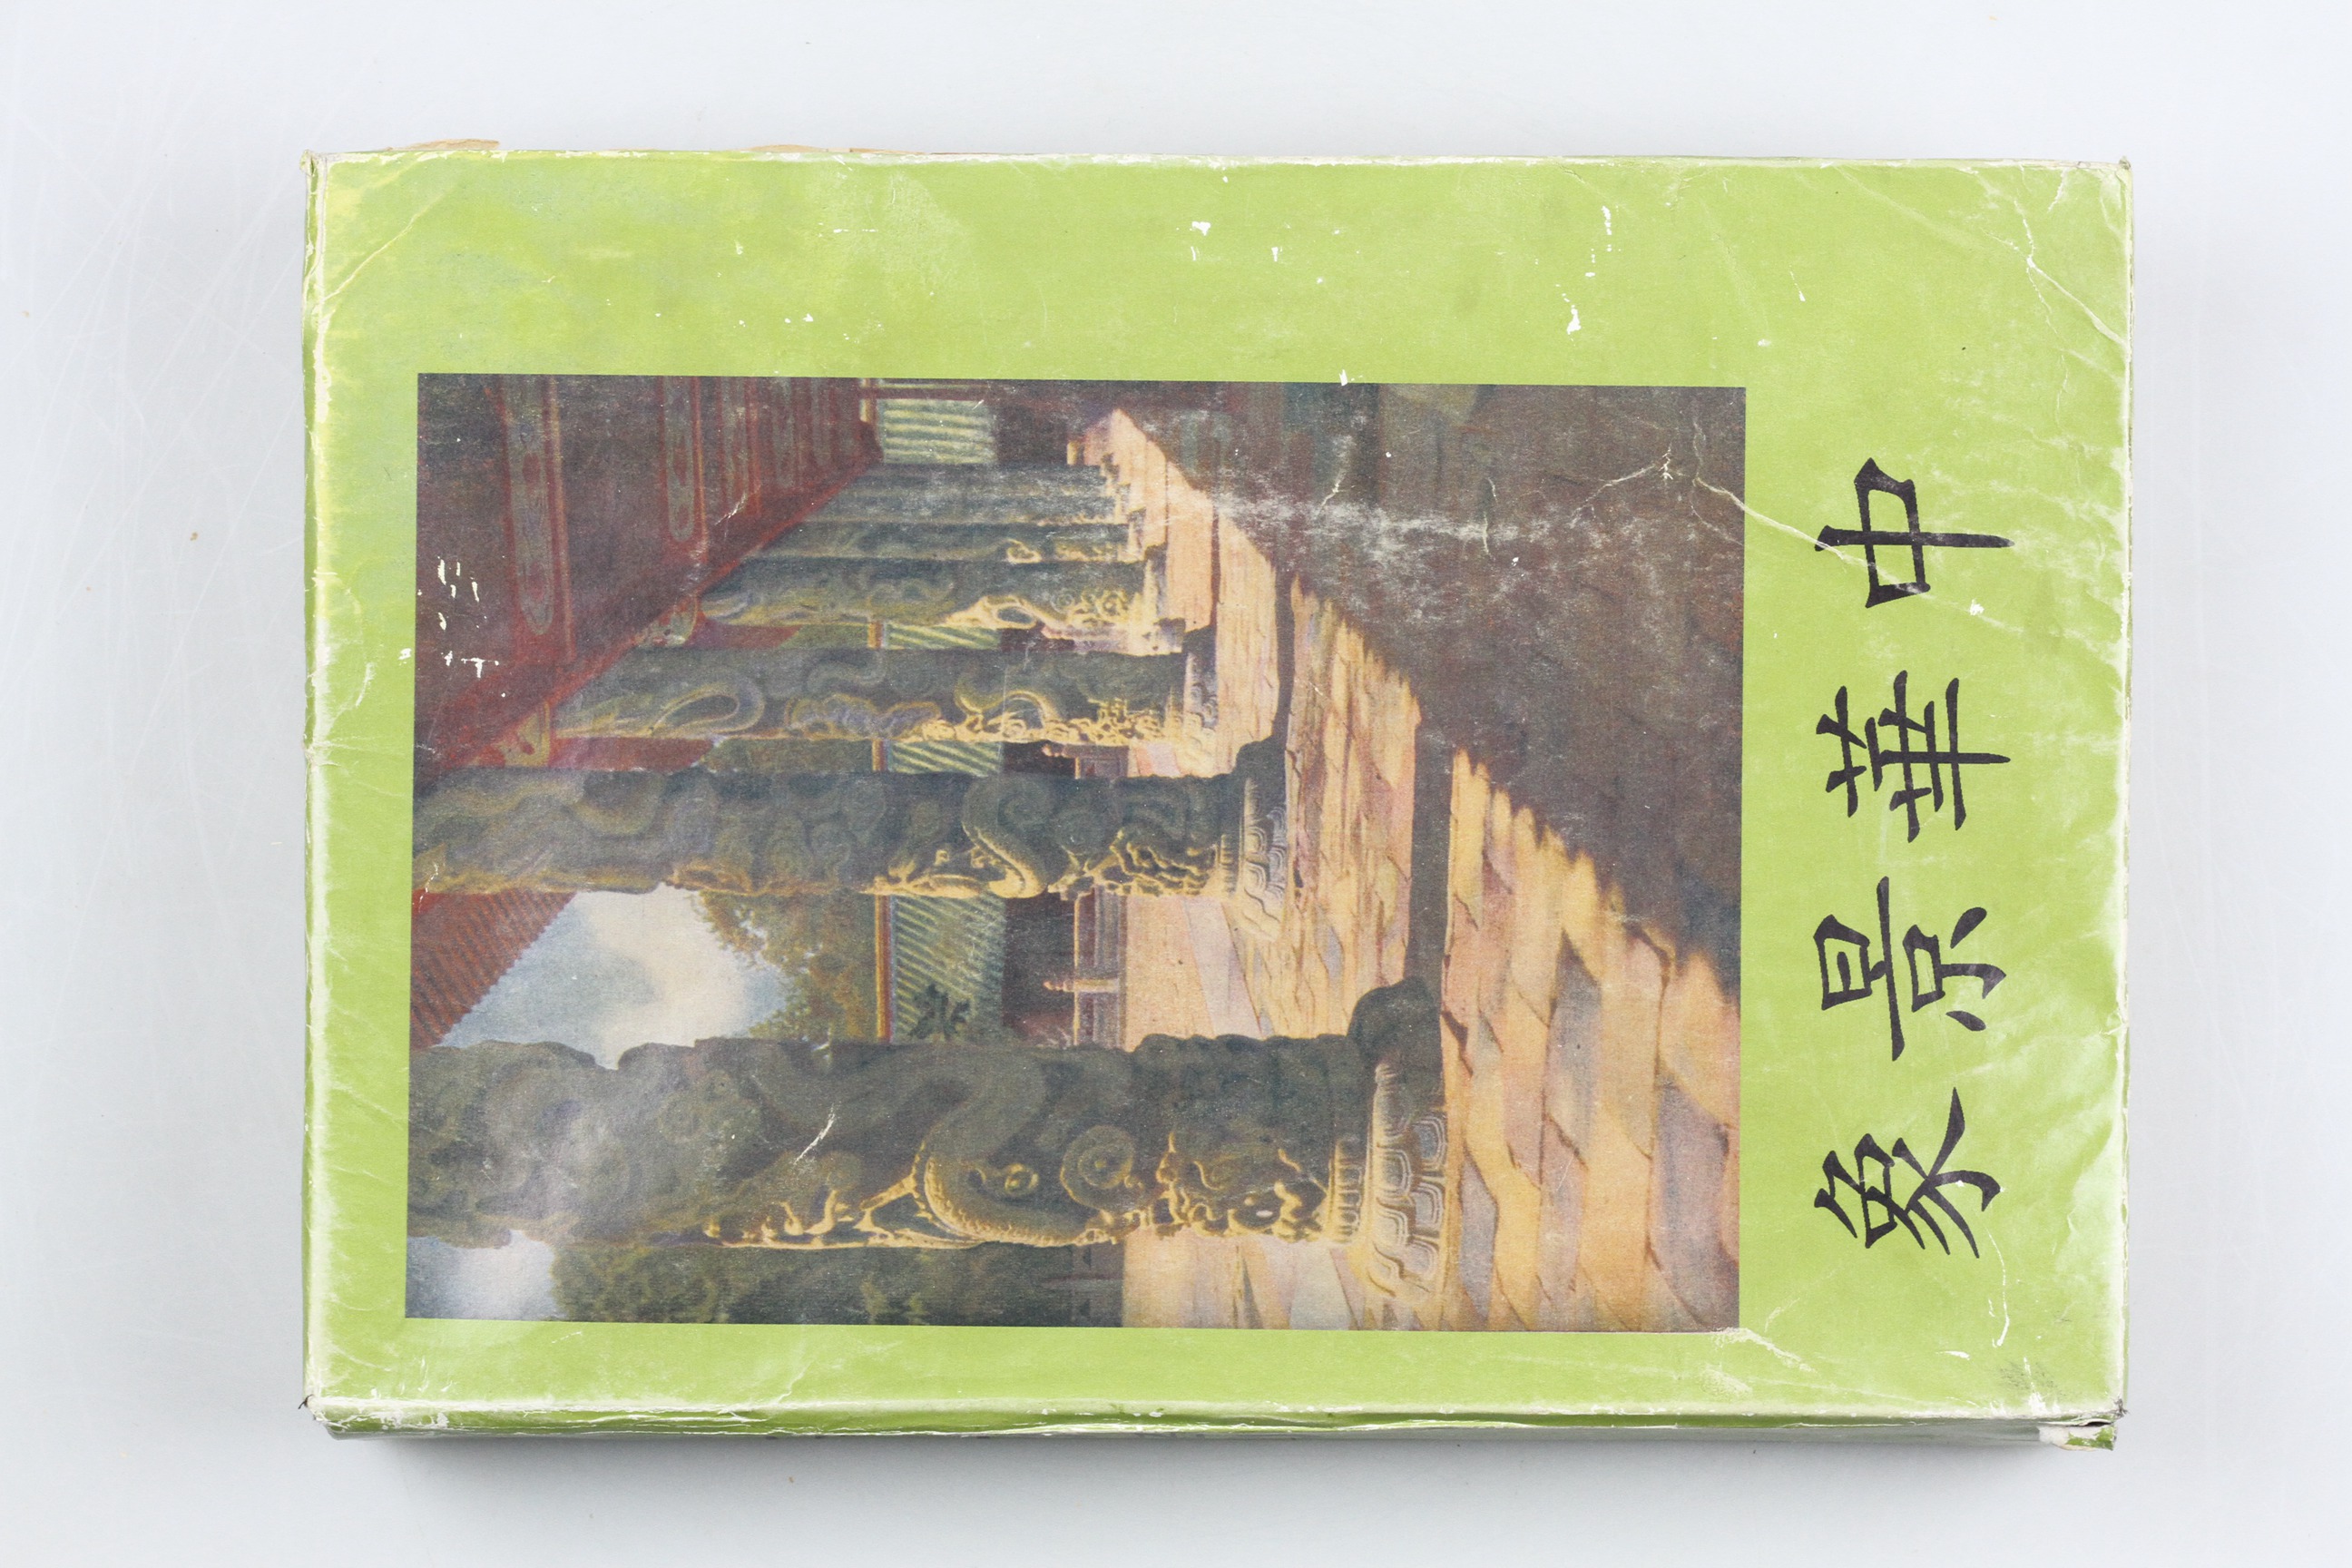 中華景象